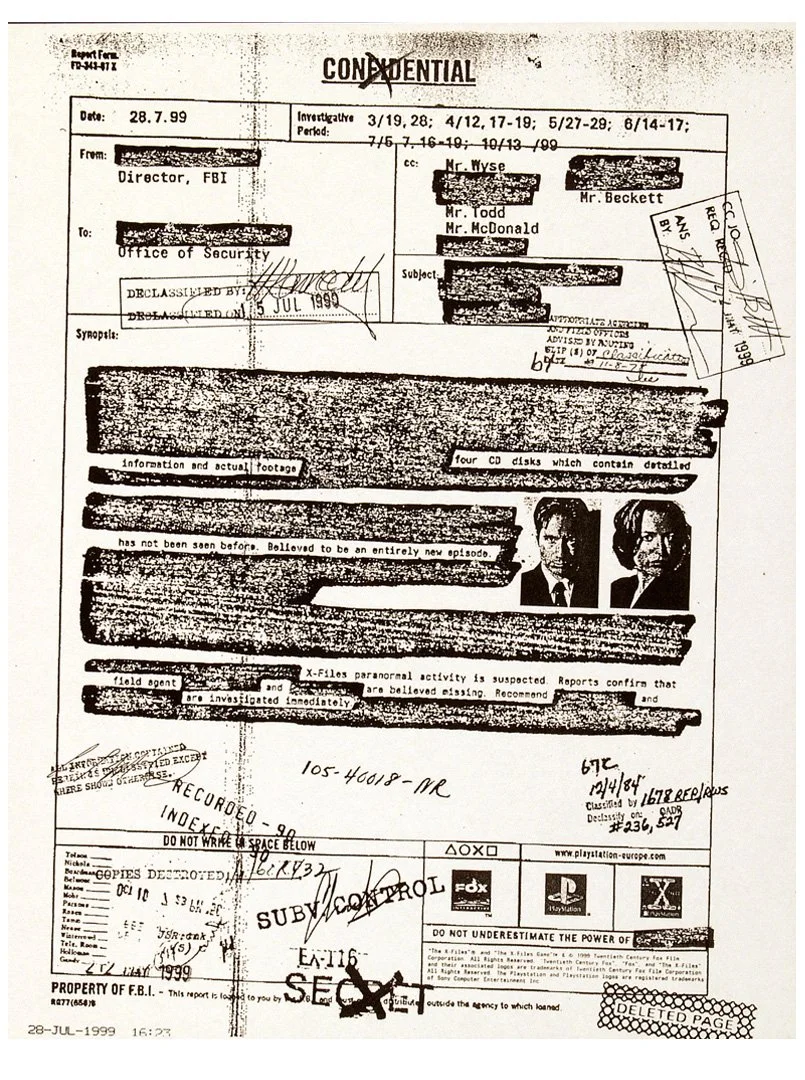 Report Form.
FD-343-67 X
CONFIDENTIAL
Date: 28.7.99
Investigative Period: 3/19,28; 4/12,17-19; 5/27-29; 6/14-17;
7/5 7,16-19; 10/13 /99
From:
Director, FBI
cc: Mr. Wyse
Mr. Beckett
Mr. Todd
Mr. McDonald
To:
Office of Security
Subject:
DECLASSIFIED BY:
DECLASSIFIED ON: 5 JUL 1999
CC JO
REQ REC'D
ANS
BY:
1999
APPROPRIATE AGENCIES
AND FIELD OFFICES
ADVISED BY ROUTING
SLIP (S) OF Classification
DATE
Synopsis:
four CD disks which contain detailed
information and actual footage
has not been seen before. Believed to be an entirely new episode.
X-Files paranormal activity is suspected. Reports confirm that
field agent and are believed missing. Recommend and
are investigated immediately
ALL INFORMATION CONTAINED
HEREIN IS UNCLASSIFIED EXCEPT
WHERE SHOWN OTHERWISE.
105-40018-NR
67C
12/4/84
Classified by 1678 RFP/RWS
Declassify on: OADR
#236,527
RECORDED - 90
INDEXED - 90
DO NOT WRITE IN SPACE BELOW
Tolson
Nichols
Boardman
Belmont
Mason
Mohr
Parsons
Rosen
Tamm
Nease
Winterrowd
Tele. Room
Holloman
Gandy
COPIES DESTROYED
OCT 10
1999
SUBV CONTROL
EX-116
SECRET
△○X□
www.playstation-europe.com
FOX
INTERACTIVE
PlayStation
X
PlayStation
DO NOT UNDERESTIMATE THE POWER OF
"The X-Files"® and "The X-Files Game"® & © 1999 Twentieth Century Fox Film
Corporation. All Rights Reserved. Twentieth Century Fox", "Fox" and "The X-Files"
and their associated logos are trademarks of Twentieth Century Fox Film Corporation
All Rights Reserved. The PlayStation and PlayStation logos are registered trademarks
of Sony Computer Entertainment Inc
PROPERTY OF F.B.I. - This report is loaned to you by the outside the agency to which loaned.
DELETED PAGE
28-JUL-1999 16:23